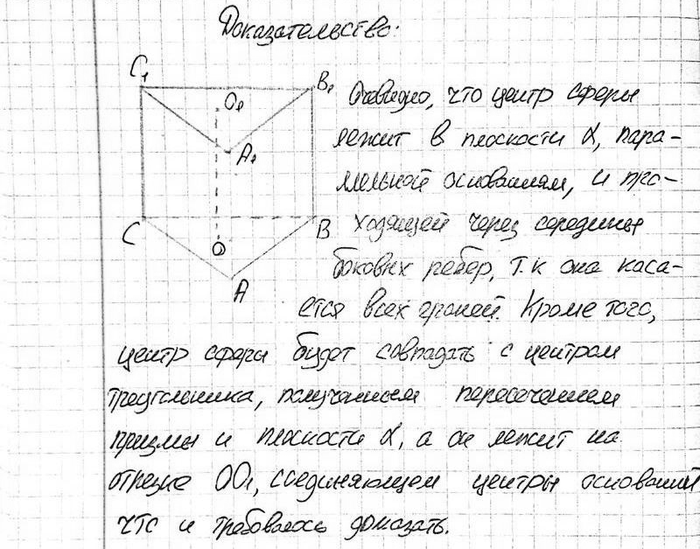 Доказательство:
C₁
B₁
O₁
A₁
C
B
O
A
Очевидно, что центр сферы
лежит в плоскости α, пара-
лельной основаниям, и про-
ходящей через середины
боковых ребер, т.к она каса-
ется всех граней. Кроме того,
центр сферы будет совпадать с центром
треугольника, полученным пересечением
призмы и плоскости α, а он лежит на
отрезке OO₁, соединяющем центры оснований
что и требовалось доказать.